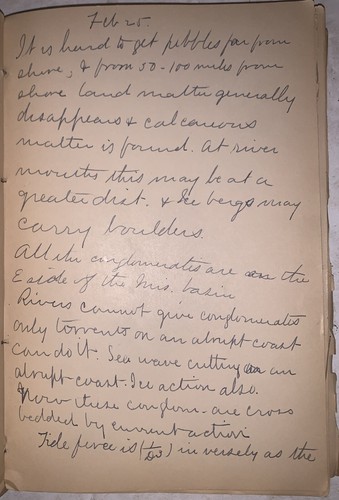 Feb 25.
It is hard to get pebbles far from
shore, & from 50-100 miles from
shore land matter generally
disappears & calcareous
matter is found. At river
mouths this may be at a
greater dist. & Ice bergs may
carry boulders.
All the conglomerates are on the
E side of the Mis. basin
Rivers cannot give conglomerates
only torrents on an abrupt coast
can do it. Sea wave cutting on an
abrupt coast. Ice action also.
Now these conglom. are cross
bedded by current action
Tide force is (1/D3) inversely as the